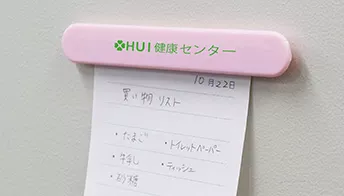 HUI健康センター
10月22日
買い物リスト
・たまご ・トイレットペーパー
・牛乳 ・ティッシュ
・砂糖